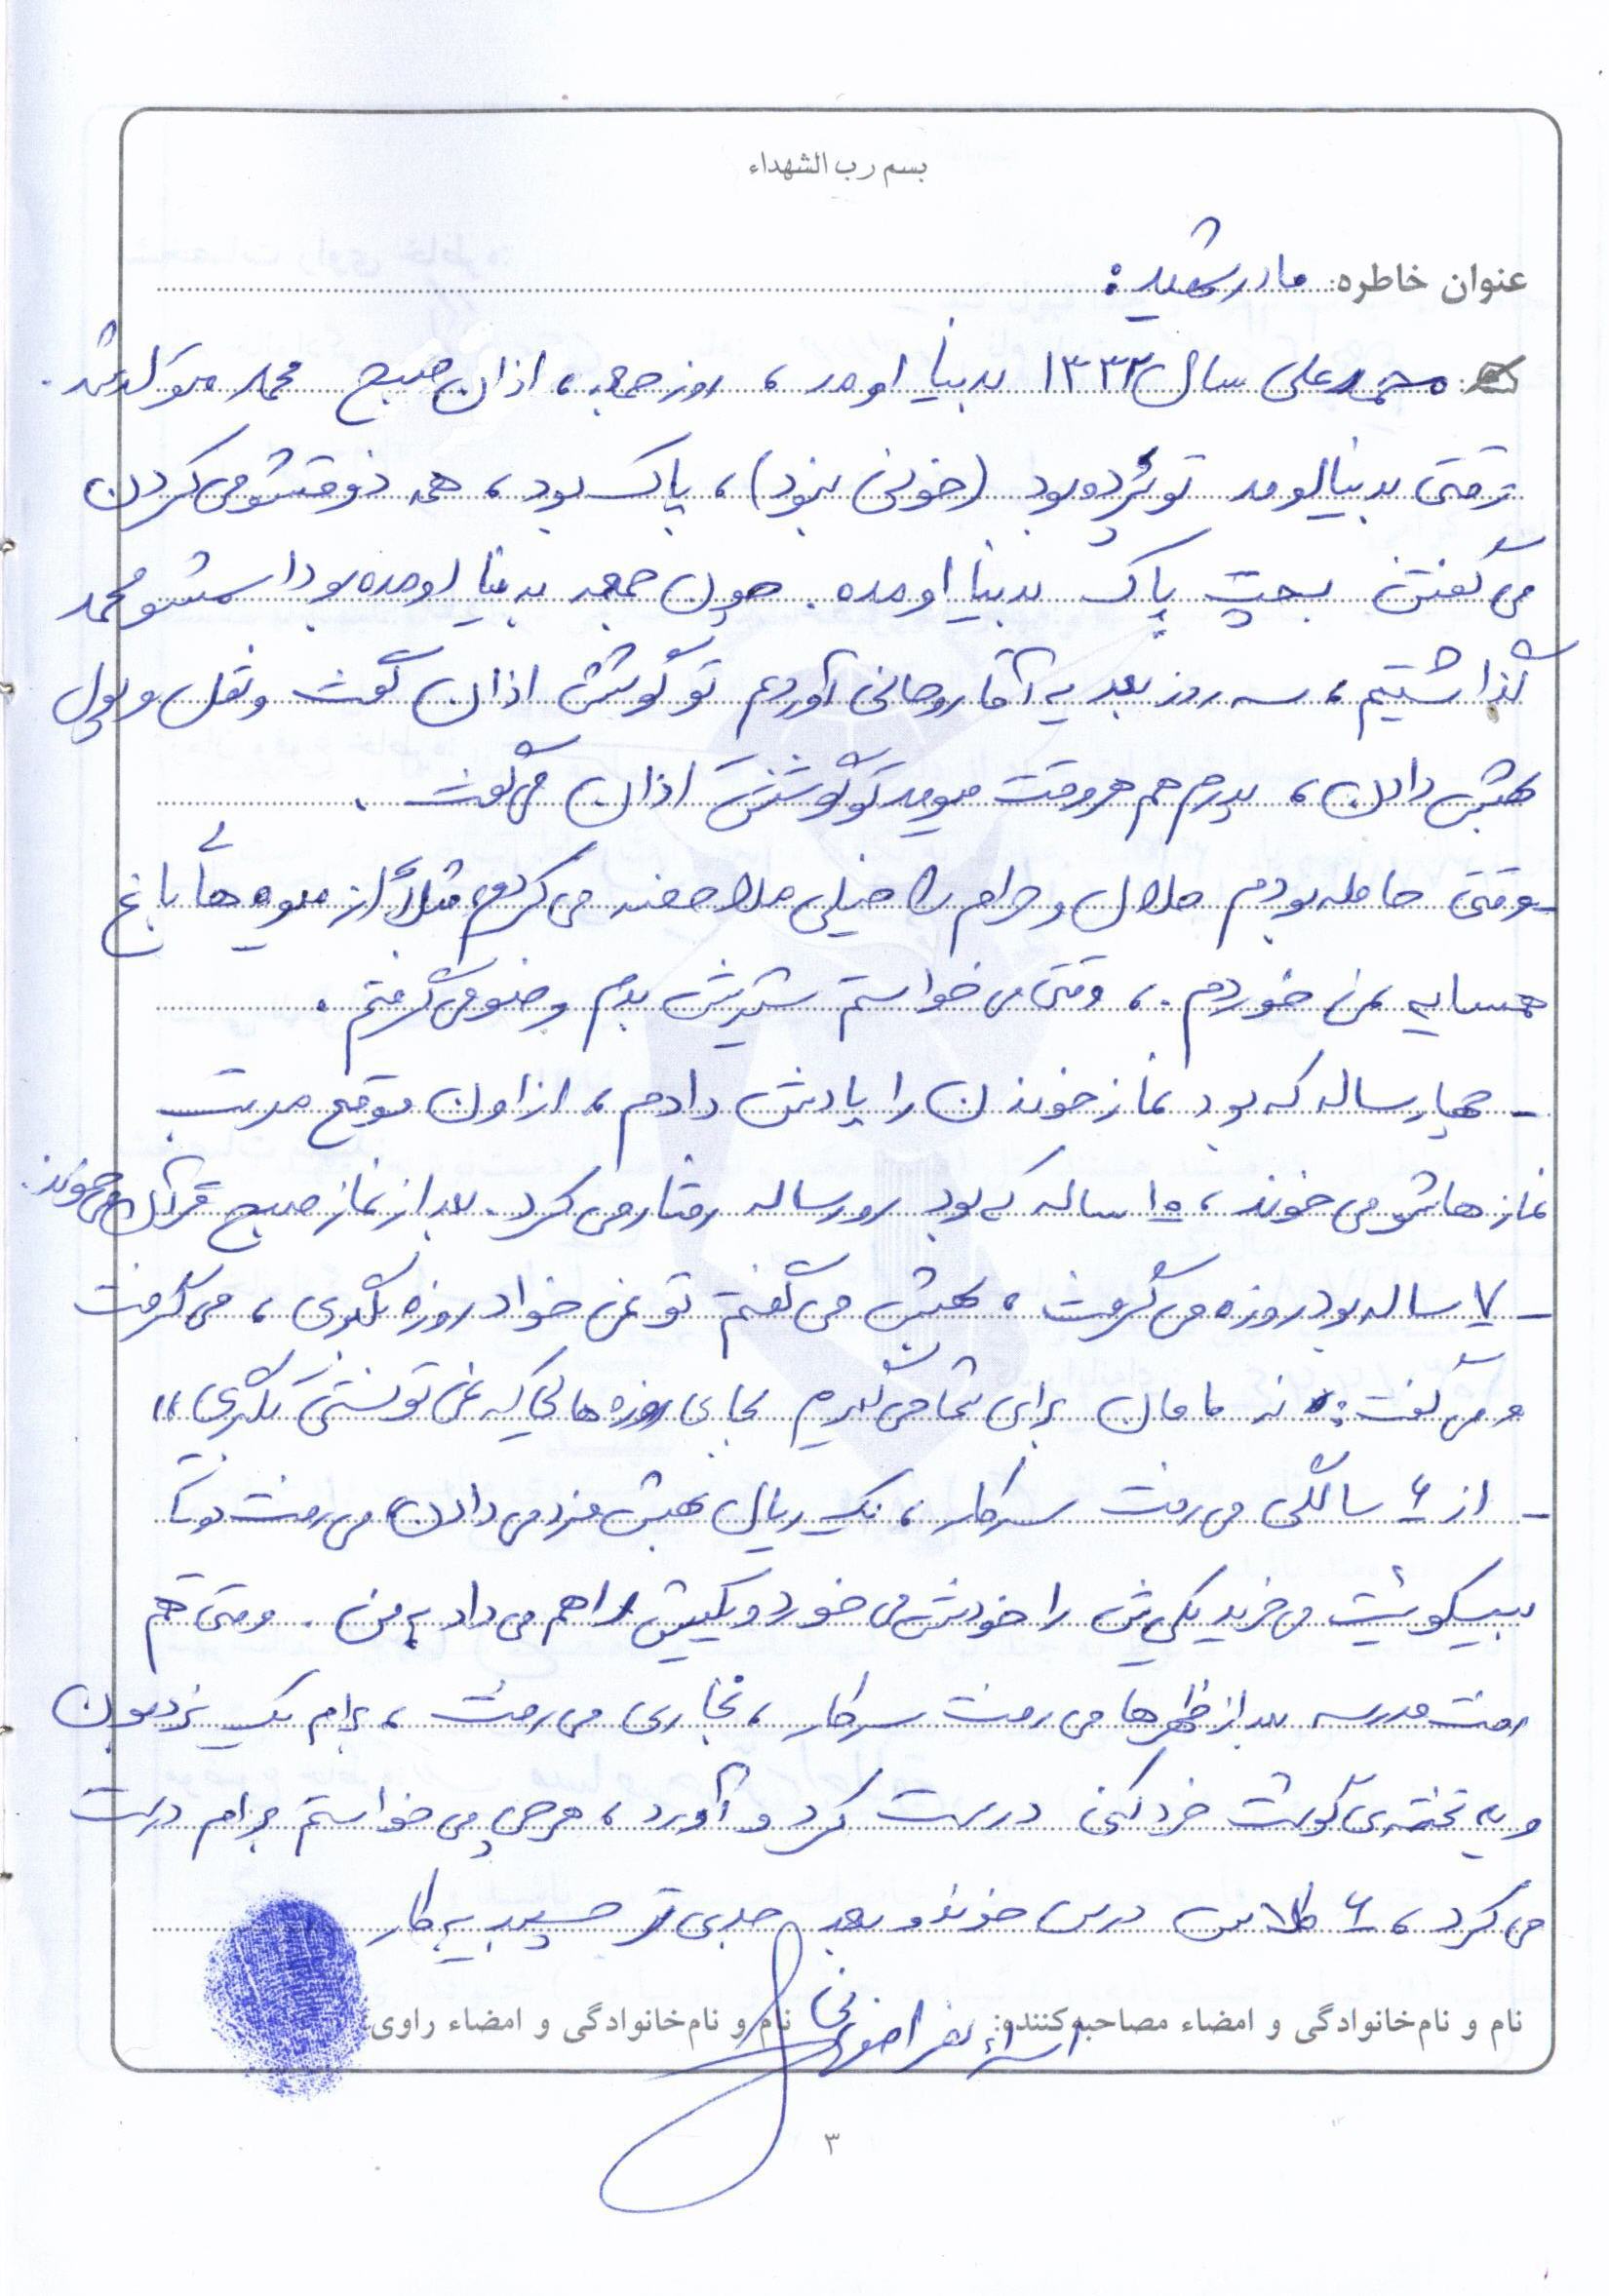 بسم رب الشهداء
عنوان خاطره: مادر شهید:
محمدعلی سال ۱۳۳۲ بدنیا اومد، روز جمعه، اذان صبح محمد متولد شد.
وقتی بدنیا اومد تو پرده بود (خونی نبود)، پاک بود، همه ذوقشو می کردن
می گفتن بچت پاک بدنیا اومده. چون جمعه بدنیا اومده بود اسمشو محمد
گذاشتیم، سه روز بعد یه آقا روحانی آوردم تو گوشش اذان گفت و نقل و پول
بهش دادن، پدرم هم هر وقت میومد تو گوشش اذان می گفت.
- وقتی حامله بودم حلال و حرام را خیلی ملاحضه می کردم مثلاً از میوه های باغ
همسایه نمی خوردم.، وقتی می خواستم شیرش بدم وضو می گرفتم.
- چهار ساله که بود نماز خوندن را یادش دادم، از اون موقع مرتب
نماز هاشو می خوند، ۱۵ ساله که بود رو رساله رفتار می کرد. بعد از نماز صبح قرآن می خوند.
- ۷ ساله بود روزه می گرفت، بهش می گفتم تو نمی خواد روزه بگیری، می گرفت
و می گفت: نه مامان برای شما می گیرم بجای روزه هایی که نمی تونستی بگیری"
- از ۶ سالگی می رفت سر کار، یک ریال بهش مزد می دادن می رفت دو تا
بیسکویت می خرید یکی ش را خودش می خورد و یکیش را هم می داد به من. وقتی هم
رفت مدرسه بعد از ظهرها می رفت سر کار، نجاری می رفت، برام یک نردبون
و یه تخته ی گوشت خرد کنی درست کرد و آورد، هر چی می خواستم برام درست
می کرد، ۶ کلاس درس خوند و بعد جدی تر چسبید به کار
نام و نام خانوادگی و امضاء مصاحبه کننده:
نام و نام خانوادگی و امضاء راوی:
۳